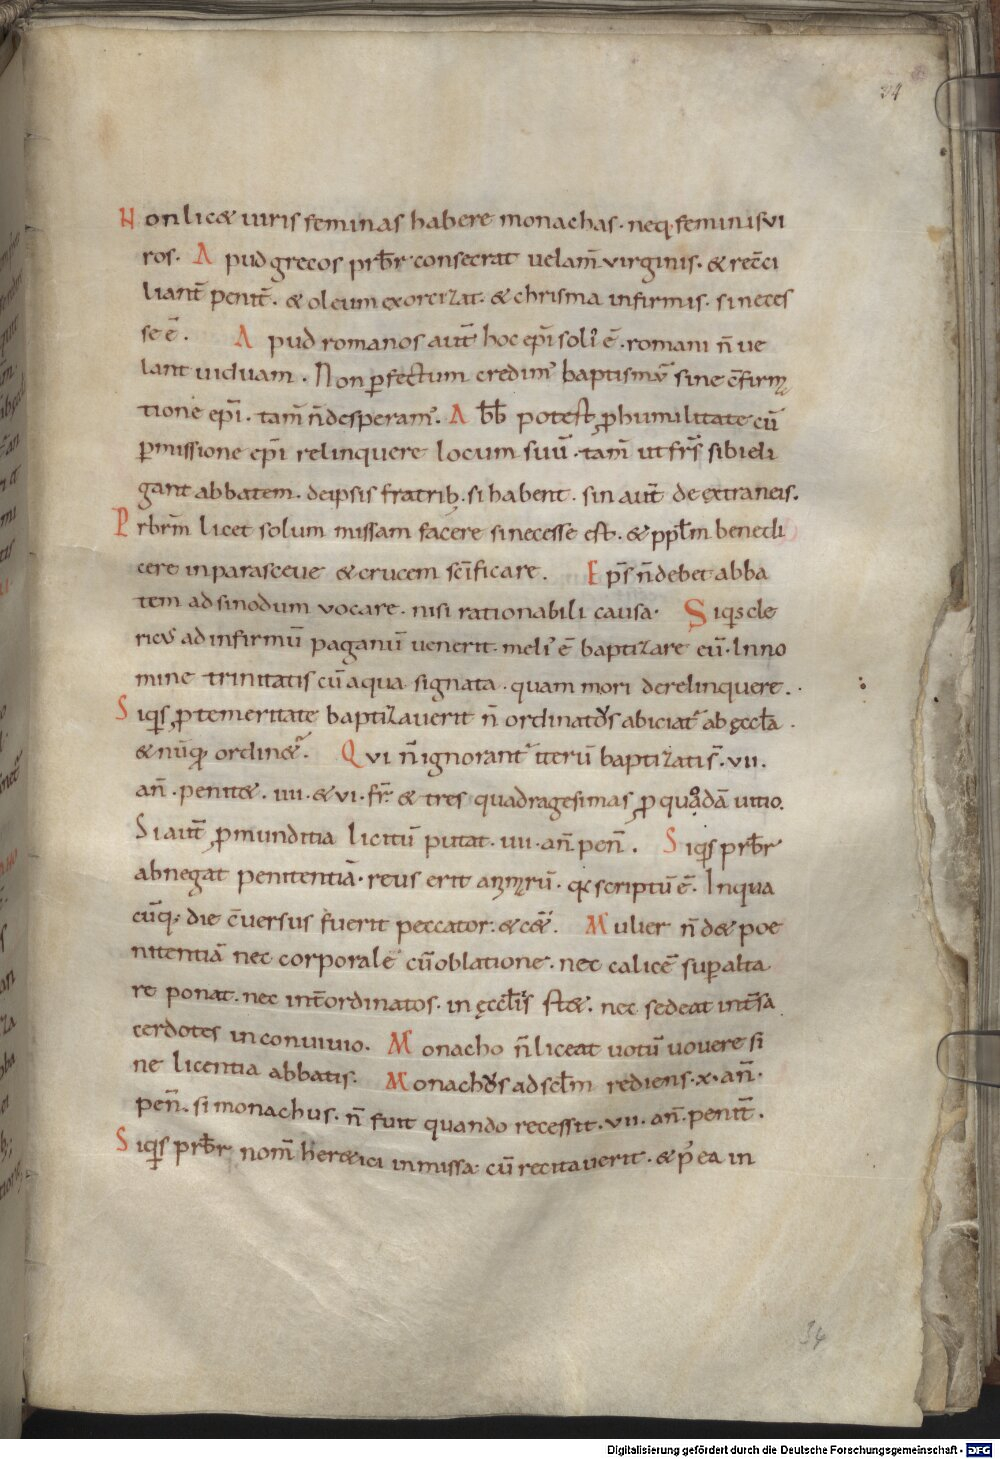 34
Non licet uiris feminas habere monachas· neq; feminis vi
ros· Apud grecos prb̅r consecrat uelam̅ virginis· & rec̅ci
liant̅ penit̅· & oleum exorcizat· & chrisma infirmis· si neces
se ē· Apud romanos aut̅ hoc ep̅i soli᾽ ē· romani n̅ ue
lant uiduam· Non ꝑfectum credim᾽ baptismu̅ sine c̅firma
tione ep̅i· tam̅ n̅ desperam᾽· Abb̅ potest ꝓ humilitate cu̅
ꝑmissione ep̅i relinquere locum suu̅· tam̅ ut fr̅s sibi eli
gant abbatem· de ipsis fratrib; si habent· sin aut̅ de extraneis·
Prbr̅m licet solum missam facere si necesse est· & ppl̅m benedi
cere in parasceue & crucem sc̅ificare· Ep̅s n̅ debet abba
tem ad sinodum vocare· nisi rationabili causa· Siqis cle
ricus ad infirmu̅ paganu̅ uenerit· meli᾽ ē baptizare eu̅· In no
mine trinitatis cu̅ aqua signata· quam mori derelinquere·
Siqis ꝓ temeritate baptizauerit n̅ ordinatus abiciat᾽ ab ęccl̅a·
& nu̅q̅ ordinet᾽· Qvi n̅ ignorant᾽ iteru̅ baptizatis̅· vii·
an̅· penitet· iiii· & vi· fr̅· & tres quadragesimas ꝓ quodā uitio·
Si aut̅ ꝓ munditia licitu̅ putat· iiii· an̅ pen̅· Siqis prb̅r
abnegat penitentiā· reus erit animaru̅· q̅ scriptu̅ ē· In qua
cu̅q; die c̅uersus fuerit peccator· & cet̅· Mulier n̅ det poe
nitentiā nec corporale̅ cu̅ oblatione· nec calice̅ suꝑ alta
re ponat· nec int̅ ordinatos· in ęccl̅iis stet· nec sedeat int̅ sa
cerdotes in conuiuio· Monacho n̅ liceat uotu̅ uouere si
ne licentia abbatis· Monachus ad scl̅m rediens· x· an̅·
pen̅· si monachus· n̅ fuit quando recessit· vii· an̅· penit̅·
Siqis prb̅r nom̅ heretici in missa· cu̅ recitauerit· & p᾽ ea in
34
Digitalisierung gefördert durch die Deutsche Forschungsgemeinschaft - DFG